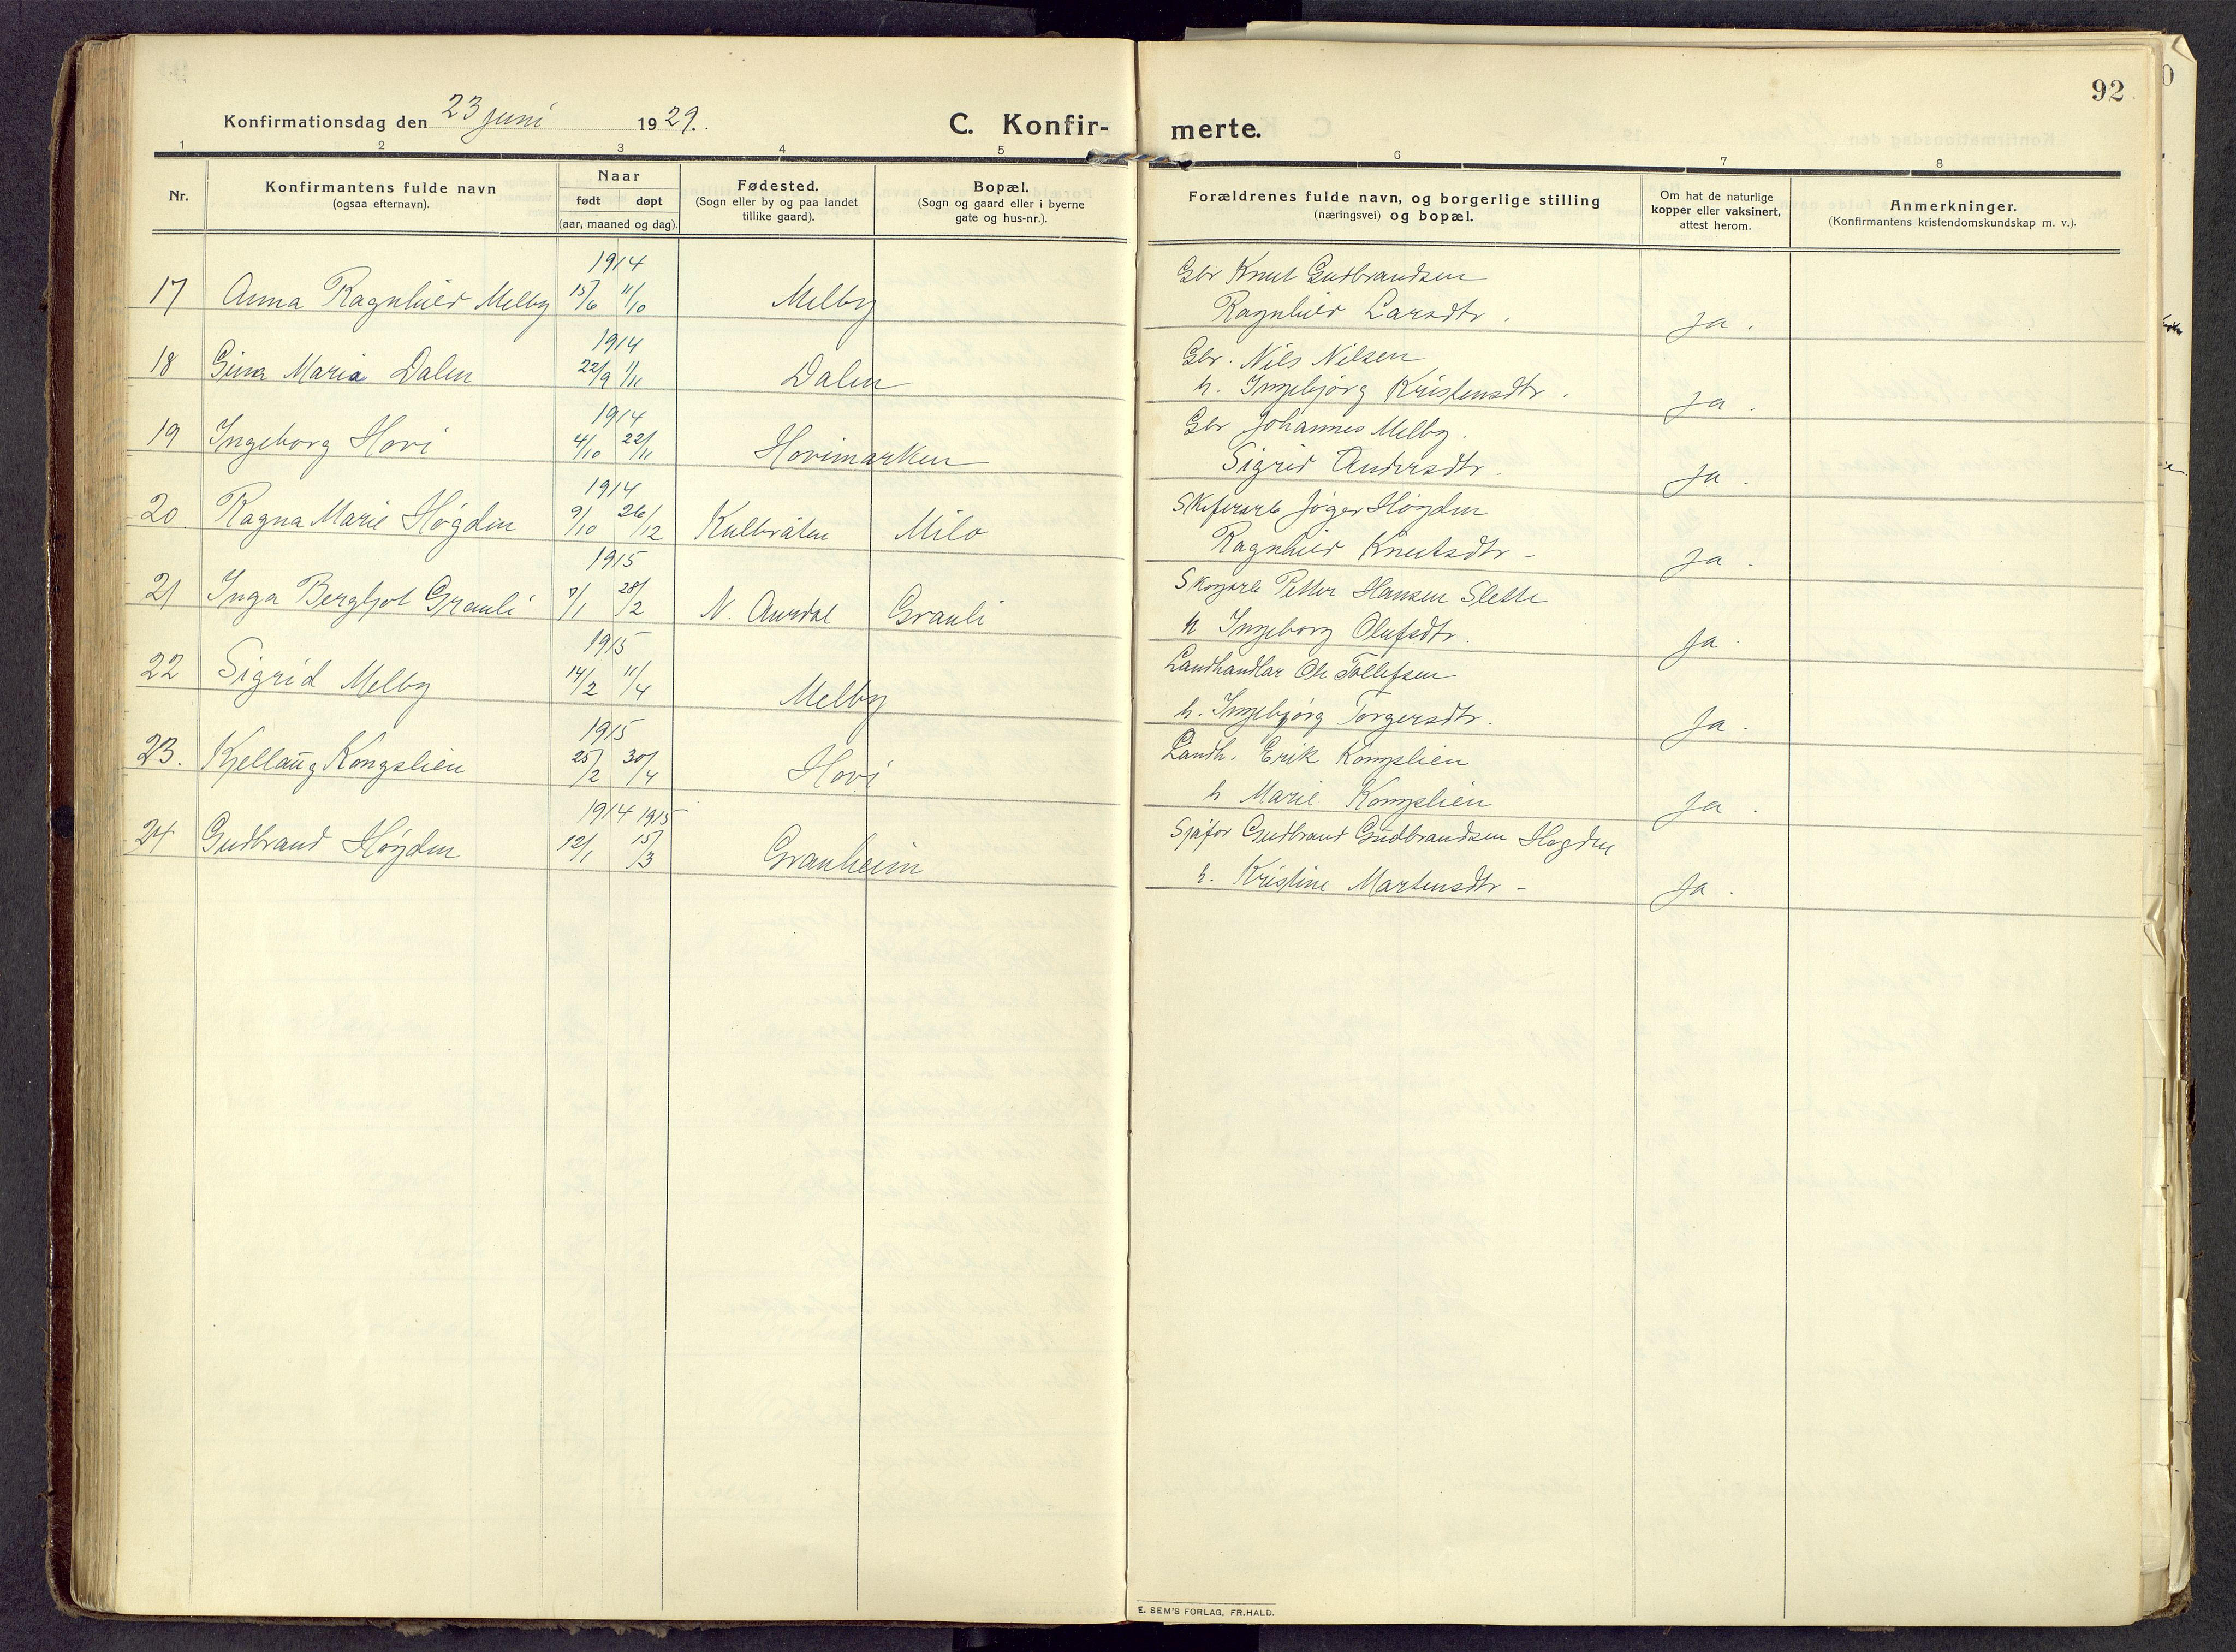 92
Konfirmationsdag den 23 juni 1929.
C. Konfir-
merte.
1 2 3 4 5 6 7 8
Nr.
Konfirmantens fulde navn
(ogsaa efternavn).
Naar
født døpt
(aar, maaned og dag).
Fødested.
(Sogn eller by og paa landet
tillike gaard).
Bopæl.
(Sogn og gaard eller i byerne
gate og hus-nr.).
Forældrenes fulde navn, og borgerlige stilling
(næringsvei) og bopæl.
Om hat de naturlige
kopper eller vaksinert,
attest herom.
Anmerkninger.
(Konfirmantens kristendomskundskap m. v.).
1914
Gbr Knut Gudbrandsen
17 Anna Ragnhild Melby 15/6 11/10 Melby
Ragnhild Larsdtr. ja.
1914
Gbr. Nils Nilsen
18 Gina Maria Dalen 22/9 1/11 Dalen
h. Ingebjørg Kristensdtr. ja.
1914
Gbr Johannes Melby.
19 Ingeborg Hovi 4/10 22/11 Hovimarken
Sigrid Andersdtr. ja.
1914
Skiferarb Jøger Høgden
20. Ragna Marie Høgden 9/10 26/12 Kulbråten Milo
Ragnhild Knutsdtr - ja.
1915
Skogarb Petter Hansen Slette
21 Inga Bergljot Granli 7/1 28/2 N. Aurdal Granli
h Ingeborg Olufsdtr. ja.
1915
Landhandlar Ole Tollefsen
22 Sigrid Melby 14/2 11/4 Melby
h. Ingebjørg Torgersdtr. ja.
1915
Landh. Erik Kongslien
23. Kjellaug Kongslien 25/2 30/4 Hovi
h Marie Kongslien ja.
1914 1915
Sjåfor Gudbrand Gudbrandsen Høgden
24 Gudbrand Høgden 12/1 15/3 Granheim
h. Kristine Martensdtr - ja.
E. SEM'S FORLAG, FR.HALD.